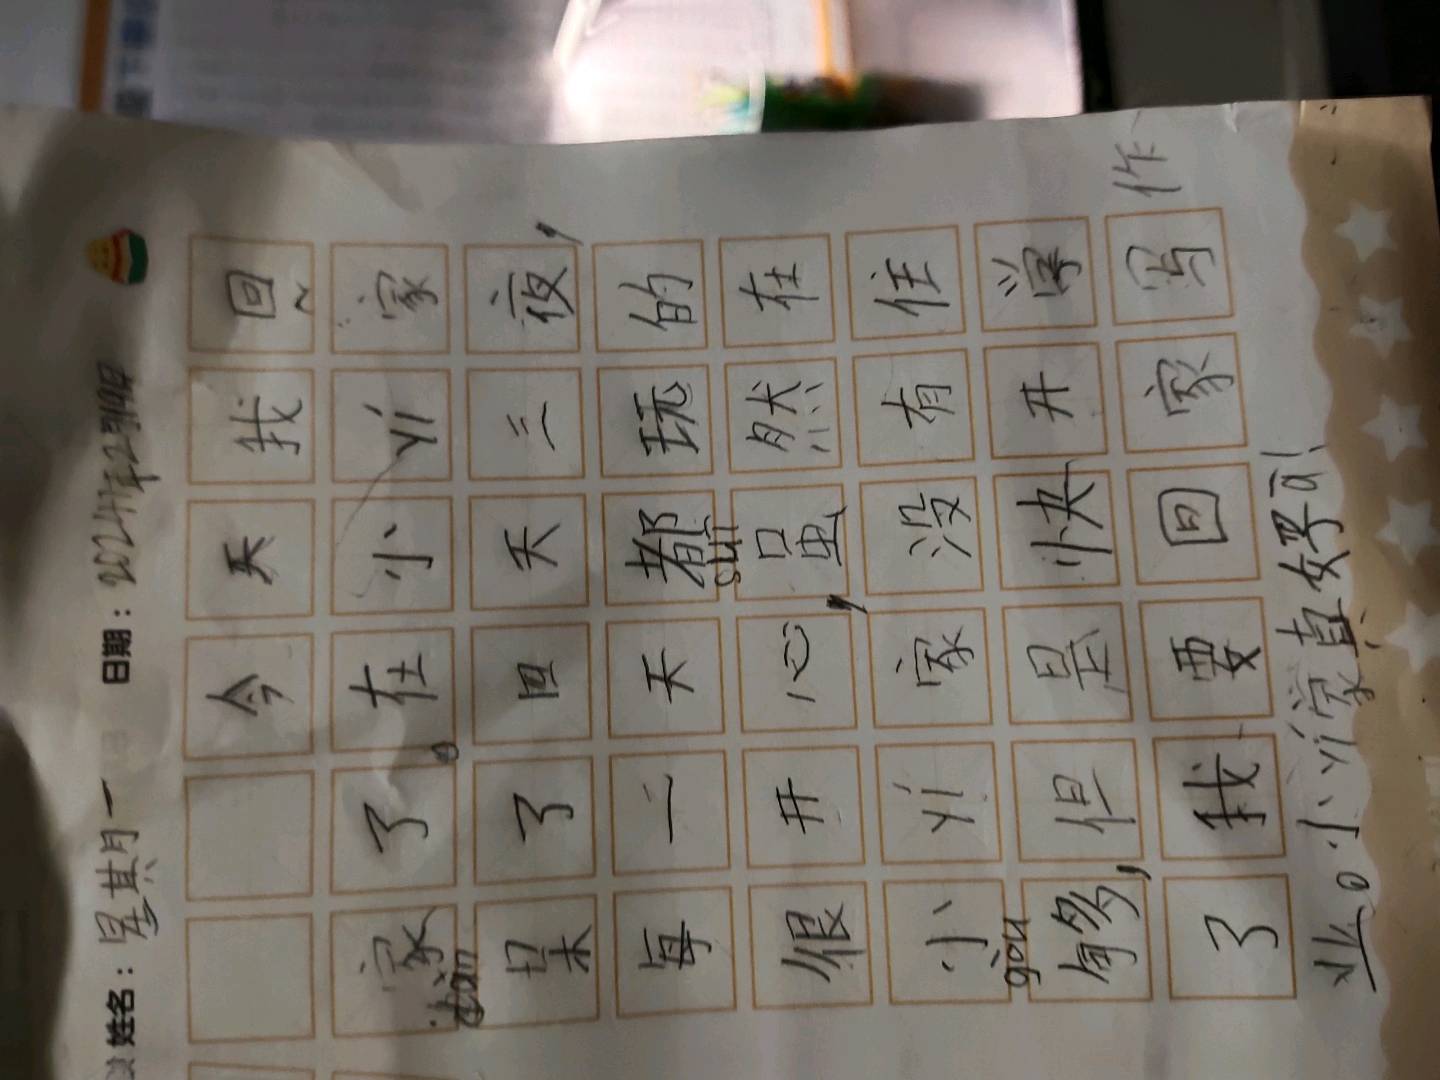 姓名：星其月一 日期：2024年2月19日
今天我回
家了。在小yi家
呆了四天三夜，
每一天都玩的
sui
很开心，虽然在
小yi家没有住
gou
够，但是快开学
了我要回家写作
业。小yi家真好可！